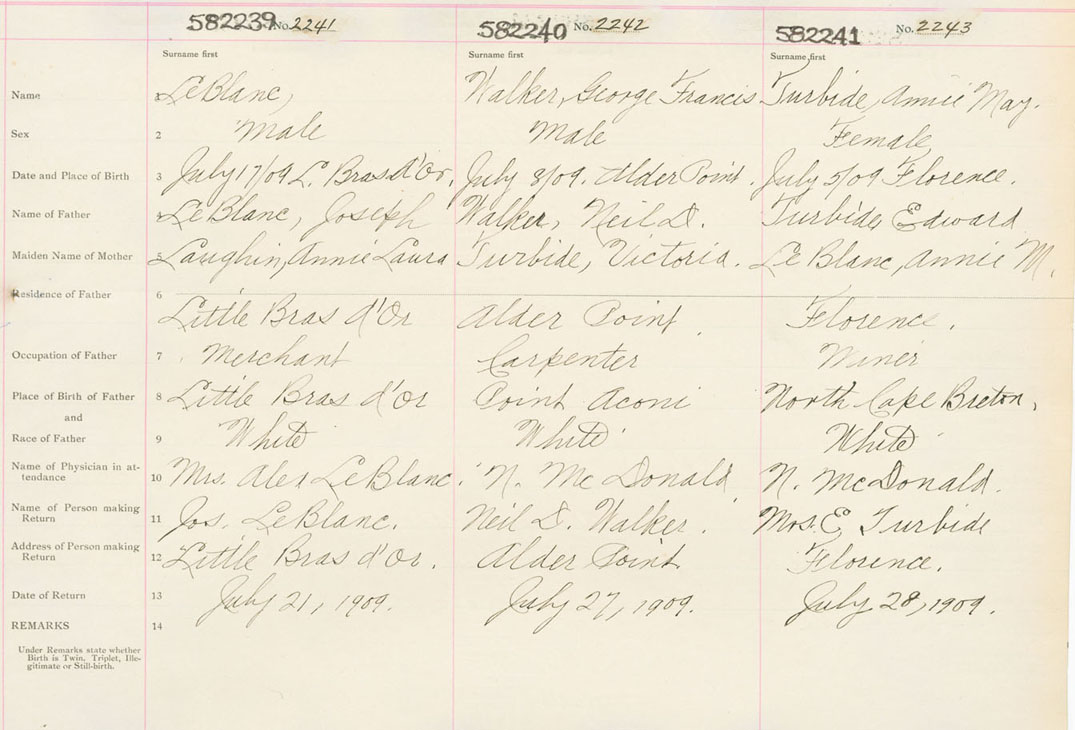 582239 No. 2241 582240 No. 2242 582241 No. 2243
Surname first Surname first Surname first
Name 1 LeBlanc, Walker, George Francis Turbide, Annie May.
Sex 2 Male Male Female
Date and Place of Birth 3 July 17/09 L. Bras d'Or. July 8/09. Alder Point. July 5/09 Florence.
Name of Father LeBlanc, Joseph Walker, Neil D. Turbide, Edward
Maiden Name of Mother 5 Laughin, Annie Laura Turbide, Victoria. Le Blanc, Annie M.
Residence of Father 6
Little Bras d'Or Alder Point. Florence.
Occupation of Father 7 Merchant Carpenter Miner
Place of Birth of Father 8 Little Bras d'Or Point Aconi North Cape Breton,
and
Race of Father 9 White White White
Name of Physician in at-
tendance 10 Mrs. Alex LeBlanc. N. McDonald N. McDonald.
Name of Person making
Return 11 Jos. LeBlanc. Neil D. Walker. Mrs. E Turbide
Address of Person making
Return 12 Little Bras d'Or. Alder Point Florence.
Date of Return 13 July 21, 1909. July 27, 1909. July 28, 1909.
REMARKS 14
Under Remarks state whether
Birth is Twin, Triplet, Ille-
gitimate or Still-birth.